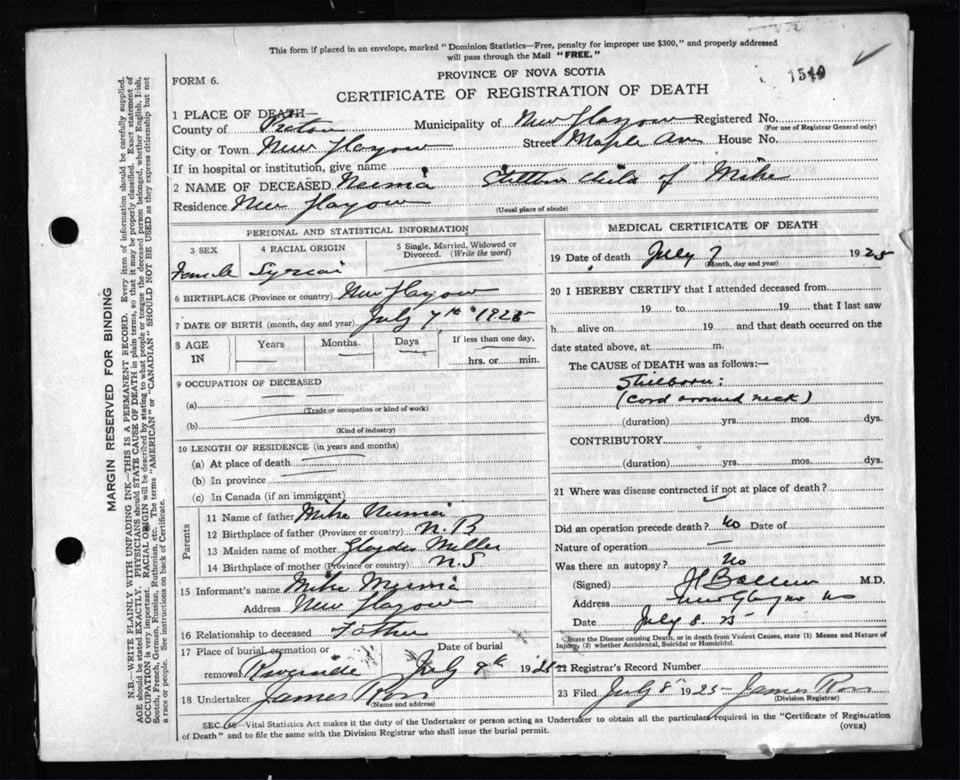 This form if placed in an envelope, marked "Dominion Statistics—Free, penalty for improper use $300," and properly addressed
will pass through the Mail "FREE."
FORM 6.
PROVINCE OF NOVA SCOTIA
1549
CERTIFICATE OF REGISTRATION OF DEATH
1 PLACE OF DEATH—
County of Pictou Municipality of New Glasgow Registered No.
(For use of Registrar General only)
City or Town New Glasgow Street Maple Ave House No.
If in hospital or institution, give name
2 NAME OF DECEASED Child of Mike
Residence New Glasgow
(Usual place of abode)
PERSONAL AND STATISTICAL INFORMATION
3 SEX 4 RACIAL ORIGIN 5 Single, Married, Widowed or Divorced. (Write the word)
Female Syrian
6 BIRTHPLACE (Province or country) New Glasgow
7 DATE OF BIRTH (month, day and year) July 7th 1925
8 AGE IN Years Months Days If less than one day,
hrs. or min.
9 OCCUPATION OF DECEASED
(a)
(Trade or occupation or kind of work)
(b)
(Kind of industry)
10 LENGTH OF RESIDENCE (in years and months)
(a) At place of death
(b) In province
(c) In Canada (if an immigrant)
Parents
11 Name of father Mike
12 Birthplace of father (Province or country) N.B
13 Maiden name of mother Miller
14 Birthplace of mother (Province or country) N.S
15 Informant's name Mike
Address New Glasgow
16 Relationship to deceased Father
17 Place of burial, cremation or removal Riverside
Date of burial
July 8th 1925
18 Undertaker James Ross
(Name and address)
MEDICAL CERTIFICATE OF DEATH
19 Date of death July 7 1925
(Month, day and year)
20 I HEREBY CERTIFY that I attended deceased from
19 to 19 that I last saw
h alive on 19 and that death occurred on the
date stated above, at m.
The CAUSE OF DEATH was as follows:—
Stillborn:
(cord around neck)
(duration) yrs. mos. dys.
CONTRIBUTORY
(duration) yrs. mos. dys.
21 Where was disease contracted if not at place of death?
Did an operation precede death? No Date of
Nature of operation —
Was there an autopsy? No
(Signed) M.D.
Address New Glasgow NS
Date July 8. 25
State the Disease causing Death, or in death from Violent Causes, state (1) Means and Nature of
Injury (2) whether Accidental, Suicidal or Homicidal.
22 Registrar's Record Number
23 Filed July 8th 1925 James Ross
(Division Registrar)
SEC. —Vital Statistics Act makes it the duty of the Undertaker or person acting as Undertaker to obtain all the particulars required in the "Certificate of Registration
of Death" and to file the same with the Division Registrar who shall issue the burial permit.
(OVER)
MARGIN RESERVED FOR BINDING
N.B.—WRITE PLAINLY WITH UNFADING INK—THIS IS A PERMANENT RECORD. Every item of information should be carefully supplied.
AGE should be stated EXACTLY. PHYSICIANS should STATE CAUSE OF DEATH in plain terms, so that it may be properly classified. Exact statement of
OCCUPATION is very important. RACIAL ORIGIN will be described by stating to what people or tongue the deceased person belonged, whether English, Irish,
Scotch, French, German, Russian, Ruthenian, etc. The terms "AMERICAN" or "CANADIAN" SHOULD NOT BE USED as they express citizenship but not
a race or people. See instructions on back of Certificate.